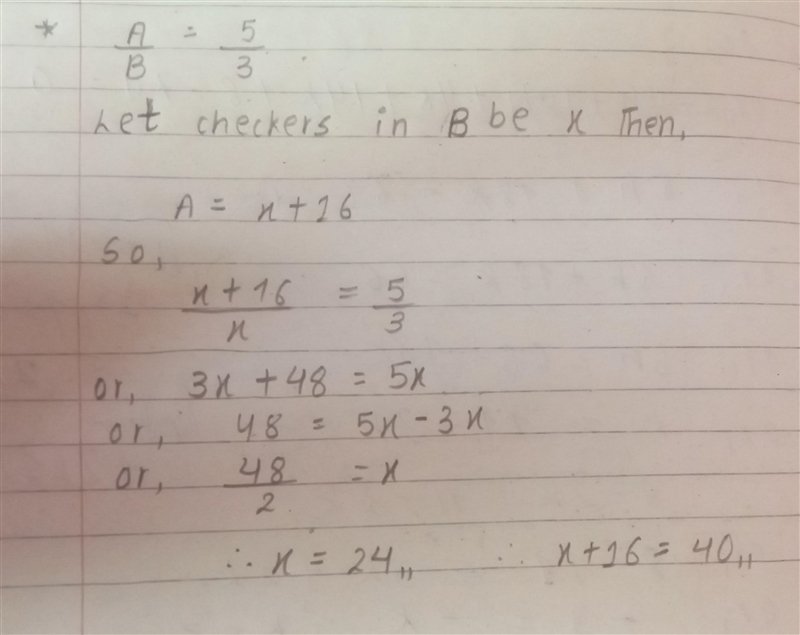 * A/B = 5/3
Let checkers in B be x Then,
A = x + 16
So,
x + 16 / x = 5/3
or, 3x + 48 = 5x
or, 48 = 5x - 3x
or, 48/2 = x
∴ x = 24,, ∴ x + 16 = 40,,